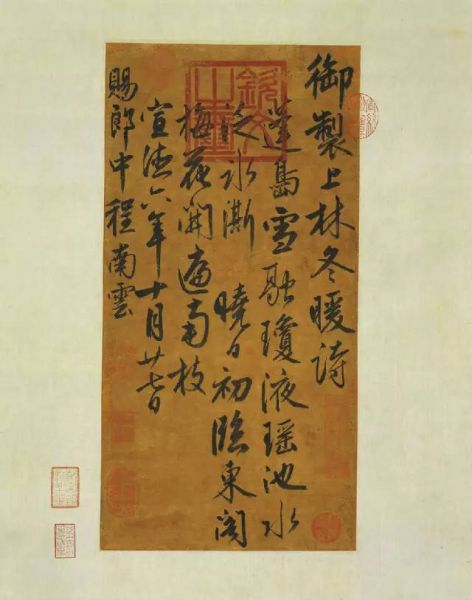 御製上林冬暖詩
蓬島雪融瓊液瑶池水
泛氷澌曉日初臨東閣
梅花開遍南枝
宣德六年十月廿七日
賜郎中程南雲
欽文
之璽